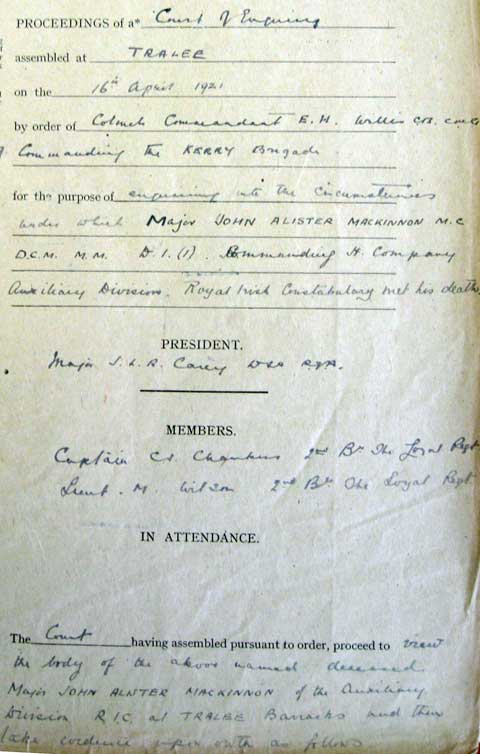 PROCEEDINGS of a* Court of Enquiry
assembled at TRALEE
on the 16th April 1921
by order of Colonel Commandant E. H. Willis C.B. C.M.G
Commanding the KERRY Brigade
for the purpose of enquiring into the circumstances
under which Major JOHN ALISTER MACKINNON M.C
D.C.M. M.M. D.I.(1). Commanding H. Company
Auxiliary Division. Royal Irish Constabulary met his death.
PRESIDENT.
Major J. L. R. Carey DSO RFA.
MEMBERS.
Captain Chambers 2nd Bn The Loyal Regt
Lieut. M. Wilson 2nd Bn The Loyal Regt
IN ATTENDANCE.
The Court having assembled pursuant to order, proceed to view
the body of the above named deceased
Major JOHN ALISTER MACKINNON of the Auxiliary
Division R.I.C. at TRALEE Barracks and then
take evidence upon oath as follows